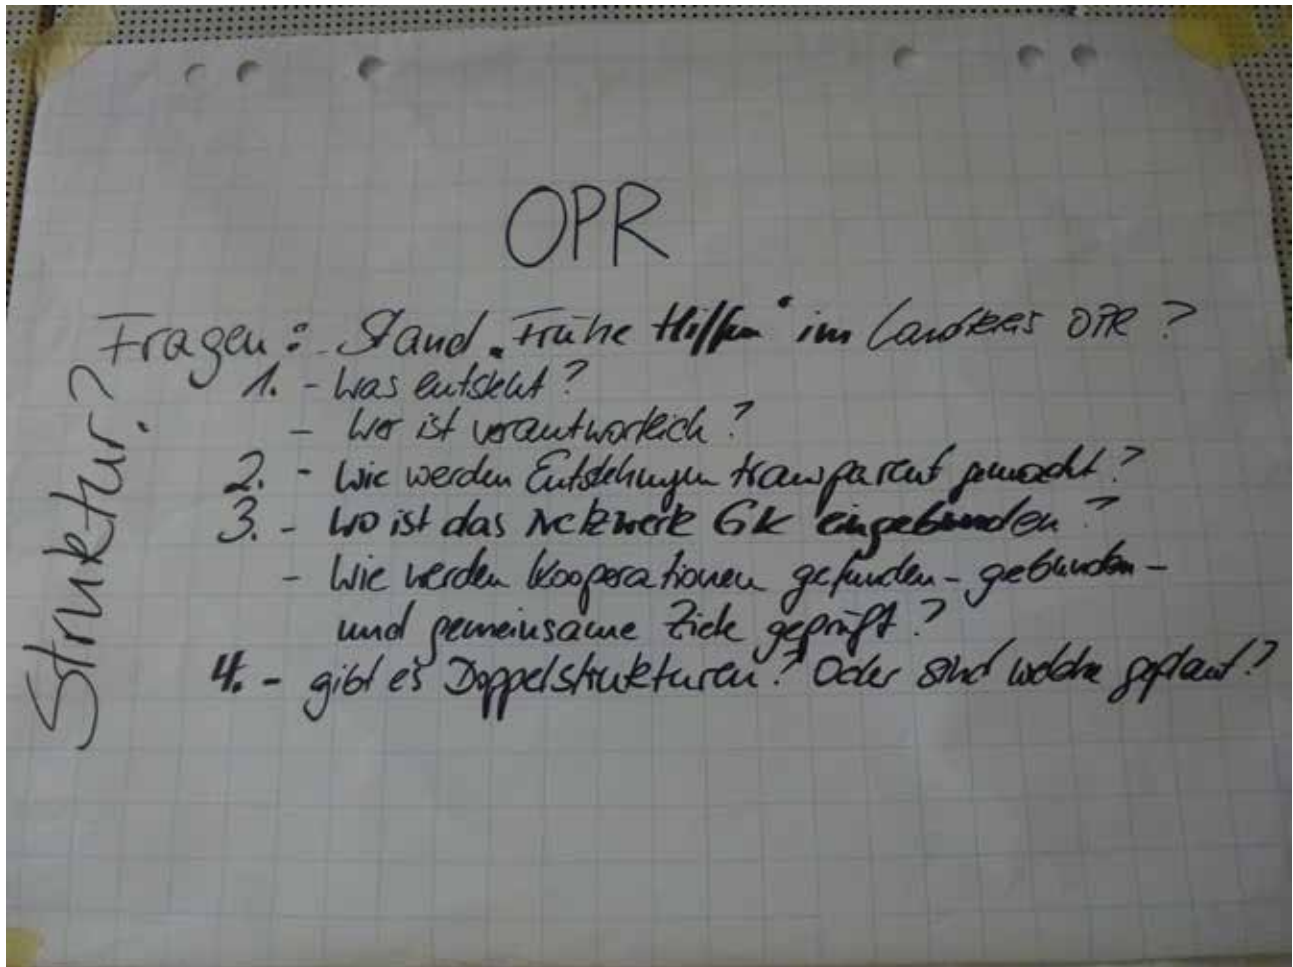 OPR
Fragen: - Stand „Frühe Hilfen“ im Landkreis OPR?
1. - Was entsteht?
- Wer ist verantwortlich?
2. - Wie werden Entstehungen transparent gemacht?
3. - Wo ist das Netzwerk GK eingebunden?
- Wie werden Kooperationen gefunden - gebunden -
und gemeinsame Ziele geprüft?
4. - gibt es Doppelstrukturen? Oder sind welche geplant?
Struktur?